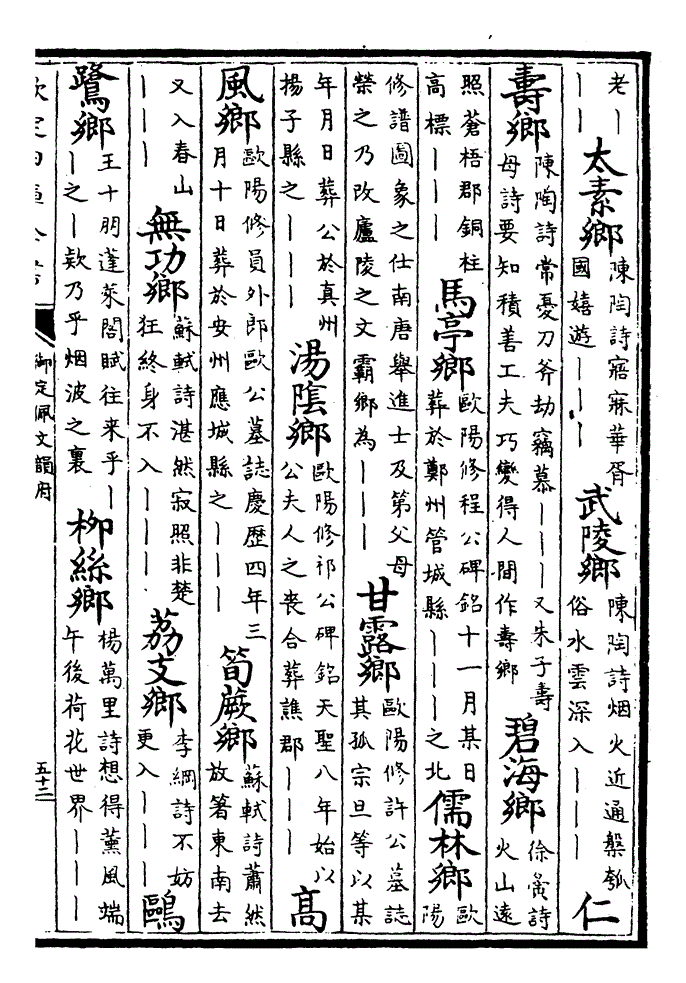 老｜｜｜太素鄉陳陶詩寤寐華胥國嬉遊｜｜｜武陵鄉陳陶詩烟火近通槃瓠俗水雲深入｜｜｜仁
壽鄉陳陶詩常憂刀斧劫竊慕｜｜｜又朱子壽母詩要知積善工夫巧變得人間作壽鄉碧海鄉徐夤詩火山遠
照蒼梧郡銅柱高標｜｜｜馬亭鄉歐陽修程公碑銘十一月某日葬於鄭州管城縣｜｜｜之北儒林鄉歐陽
修譜圖象之仕南唐舉進士及第父母榮之乃改廬陵之文霸鄉為｜｜｜甘露鄉歐陽修許公墓誌其孤宗旦等以某
年月日葬公於真州揚子縣之｜｜｜湯陰鄉歐陽修祁公碑銘天聖八年始以公夫人之喪合葬譙郡｜｜｜高
風鄉歐陽修員外郎歐公墓誌慶歷四年三月十日葬於安州應城縣之｜｜｜筍蕨鄉蘇軾詩蕭然放箸東南去
又入春山｜｜｜無功鄉蘇軾詩湛然寂照非楚狂終身不入｜｜｜荔支鄉李綱詩不妨更入｜｜｜鷗
鷺鄉王十朋蓬萊閣賦往来乎｜｜之｜欵乃乎烟波之裏柳絲鄉楊萬里詩想得薰風端午後荷花世界｜｜｜
御定佩文韻府
五十二